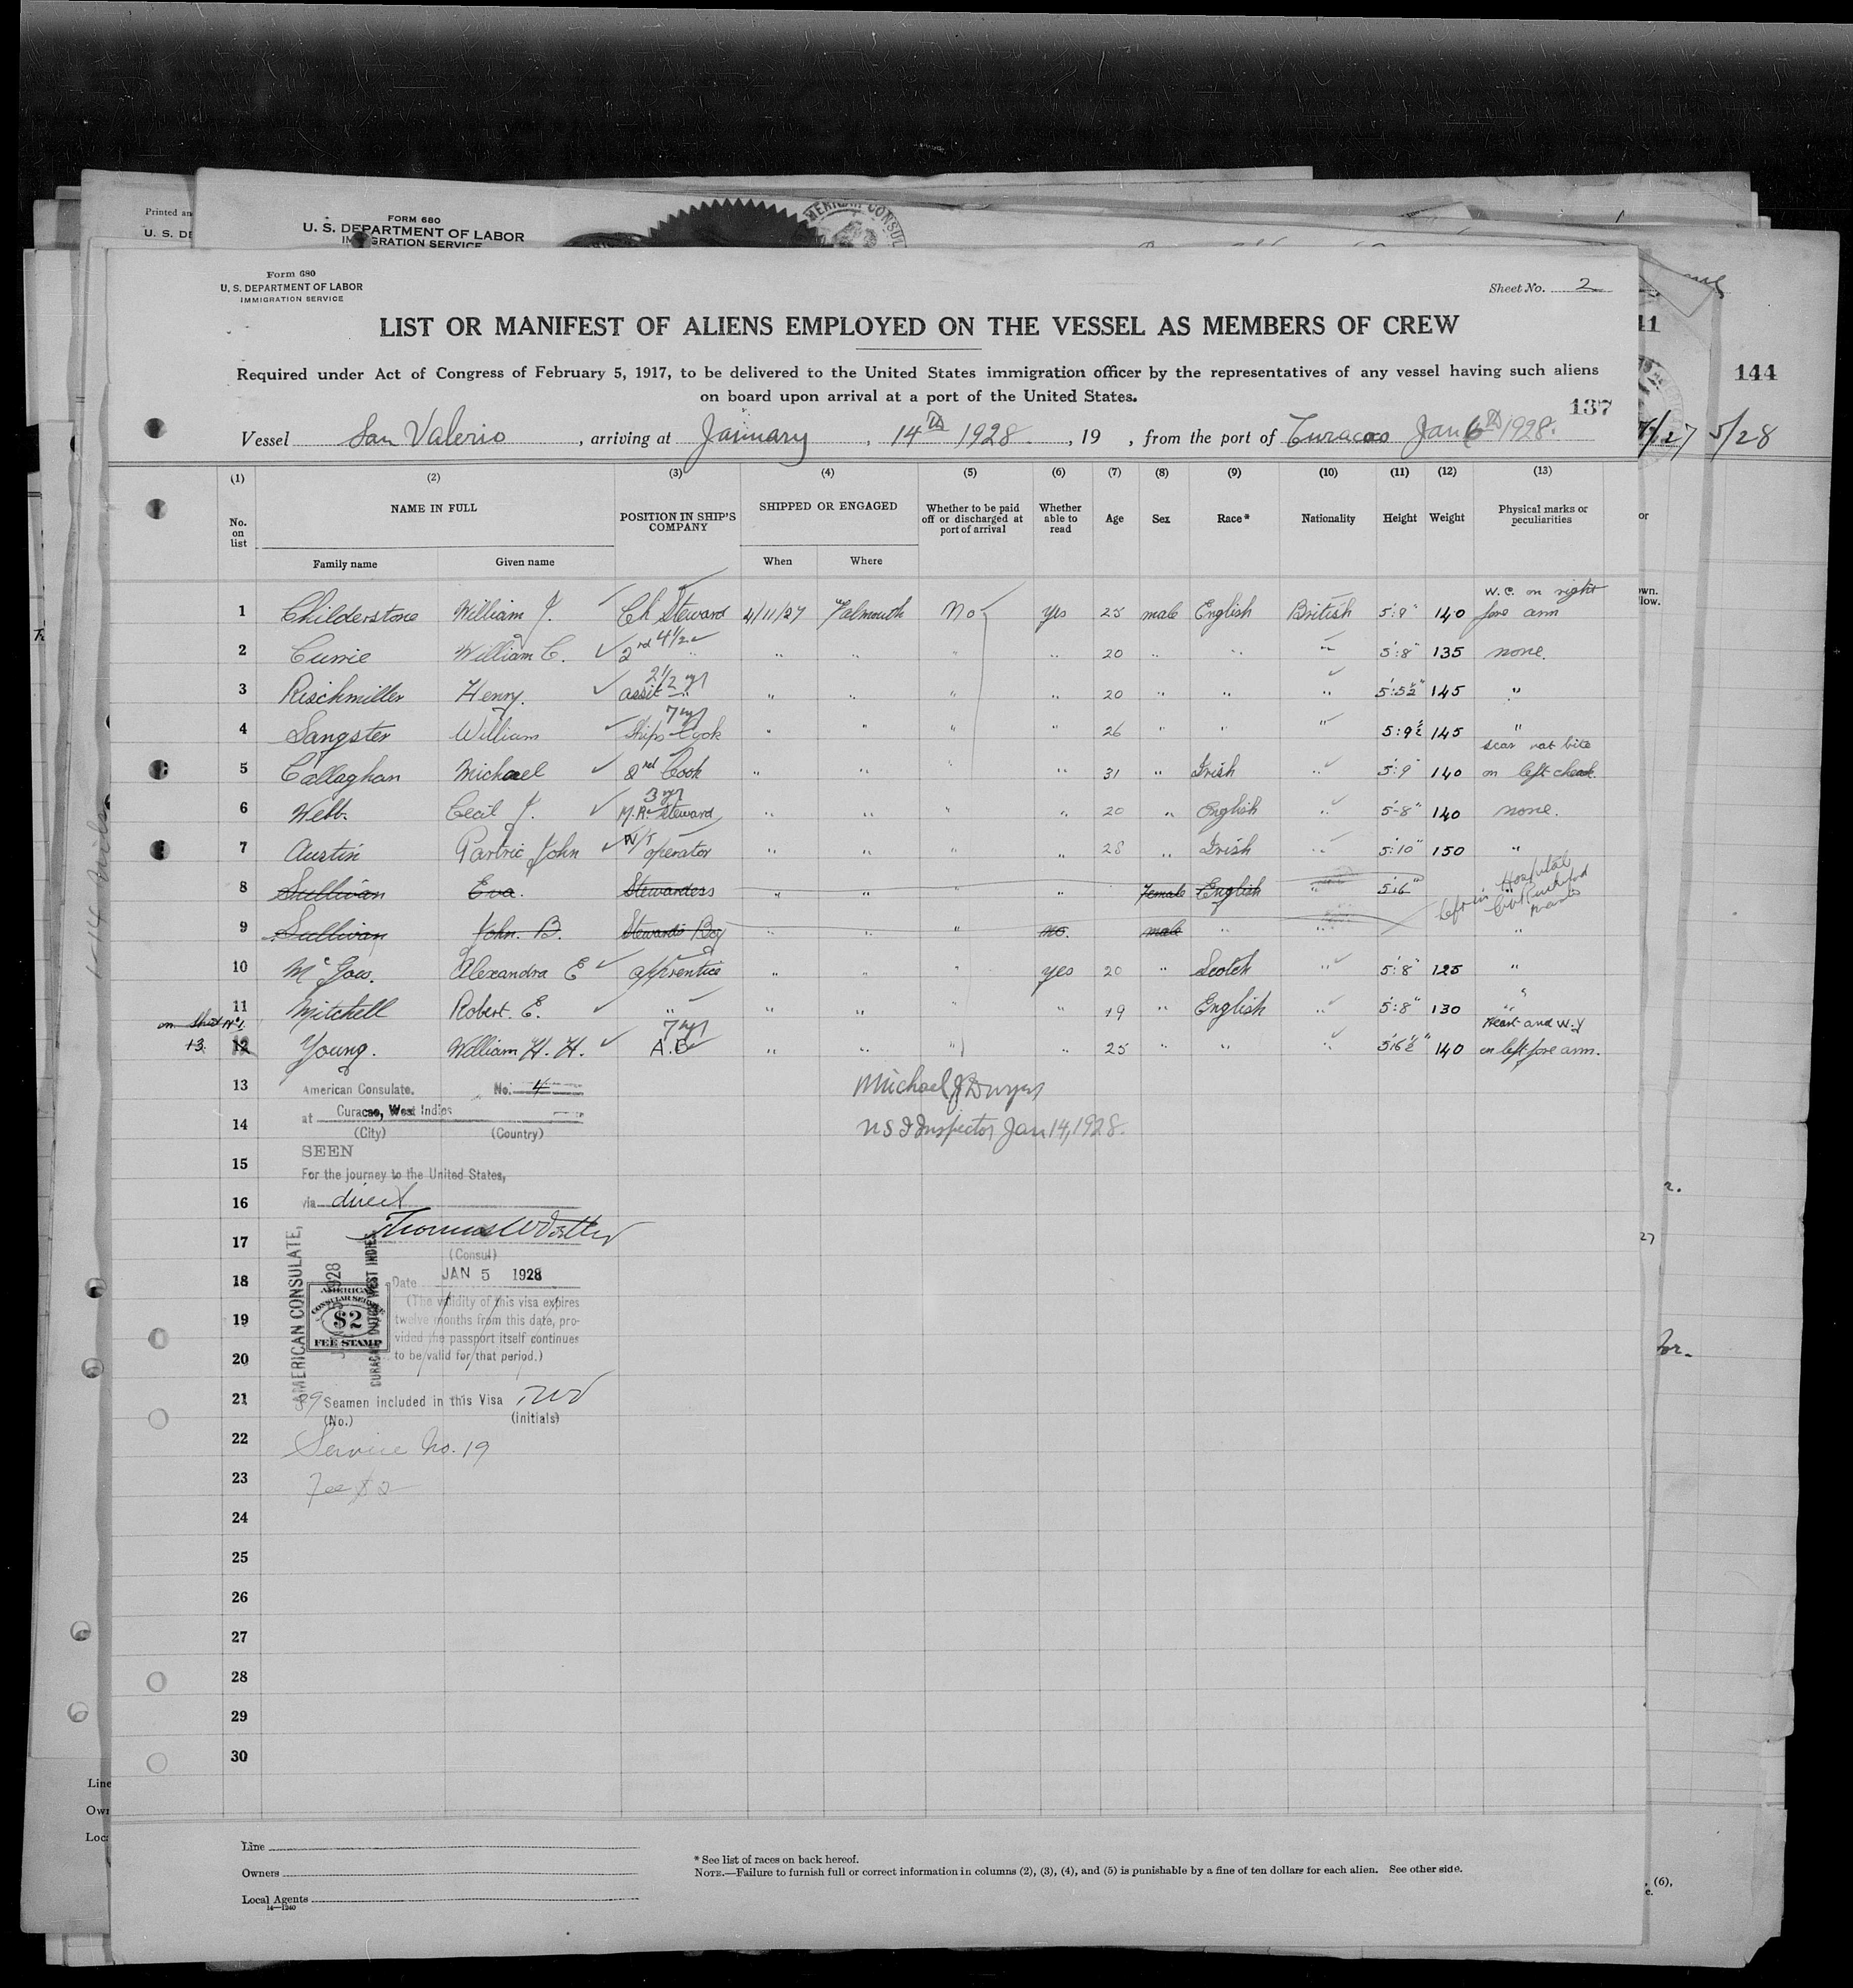 Printed an
U. S. DE
FORM 680
U. S. DEPARTMENT OF LABOR
IMMIGRATION SERVICE
AMERICAN CONSUL
Form 680
U. S. DEPARTMENT OF LABOR
IMMIGRATION SERVICE
Sheet No. 2
LIST OR MANIFEST OF ALIENS EMPLOYED ON THE VESSEL AS MEMBERS OF CREW
Required under Act of Congress of February 5, 1917, to be delivered to the United States immigration officer by the representatives of any vessel having such aliens
on board upon arrival at a port of the United States.
137
144
Vessel San Valerio, arriving at January, 14th 1928, 19 , from the port of Curacao Jan 6th 1928.
5/28
(1) (2) (3) (4) (5) (6) (7) (8) (9) (10) (11) (12) (13)
No. on list NAME IN FULL POSITION IN SHIP'S COMPANY SHIPPED OR ENGAGED Whether to be paid off or discharged at port of arrival Whether able to read Age Sex Race* Nationality Height Weight Physical marks or peculiarities
Family name Given name When Where
1 Childerstone William J. Ch Steward 4/11/27 Falmouth No yes 25 male English British 5'9" 140 W.C. on right fore arm
2 Currie William C. 2nd " 4 1/2 " " " " 20 " " " 5'8" 135 none.
3 Rischmiller Henry. assit " 2 1/2 yr " " " " 20 " " " 5'5½" 145 "
4 Sangster William Ships Cook 7 yr " " " " 26 " " " 5'9½ 145 "
5 Callaghan Michael 2nd Cook " " " " 31 " Irish " 5'9" 140 scar rat bite on left cheek.
6 Webb. Cecil J. M.R. Steward 3 yr " " " " 20 " English " 5'8" 140 none.
7 Austin Partric John W/T operator " " " " 28 " Irish " 5'10" 150 "
8 Sullivan Eva. Stewardess " " " " Female English " 5'6" " Left in Hospital
9 Sullivan John. B. Steward's Boy " " " no. male " " "
10 McGow. Alexandra E apprentice " " " yes 20 " Scotch " 5'8" 125 "
11 Mitchell Robert. E. " " " " " 19 " English " 5'8" 130 "
on Sheet No 1.
13. 12 Young. William H. H. A.B 7 yr " " " " 25 " " " 5'6½" 140 Heart and W.Y on left fore arm.
13 American Consulate. No. 4 Michael J Dwyer
at Curacao, West Indies
14 (City) (Country) US I Inspector Jan 14, 1928.
15 SEEN
For the journey to the United States,
16 via direct
17
(Consul)
18 Date JAN 5 1928
AMERICAN CONSULATE,
CURACAO, DUTCH WEST INDIES
AMERICAN
CONSULAR SERVICE
$2
FEE STAMP
(The validity of this visa expires
19 twelve months from this date, pro-
vided the passport itself continues
20 to be valid for that period.)
21 39 Seamen included in this Visa TWV
(No.) (Initials)
22 Service No. 19
23 Fee $2
24
25
26
27
28
29
30
Line
Owners
Local Agents
14—1240
* See list of races on back hereof.
NOTE.—Failure to furnish full or correct information in columns (2), (3), (4), and (5) is punishable by a fine of ten dollars for each alien. See other side.